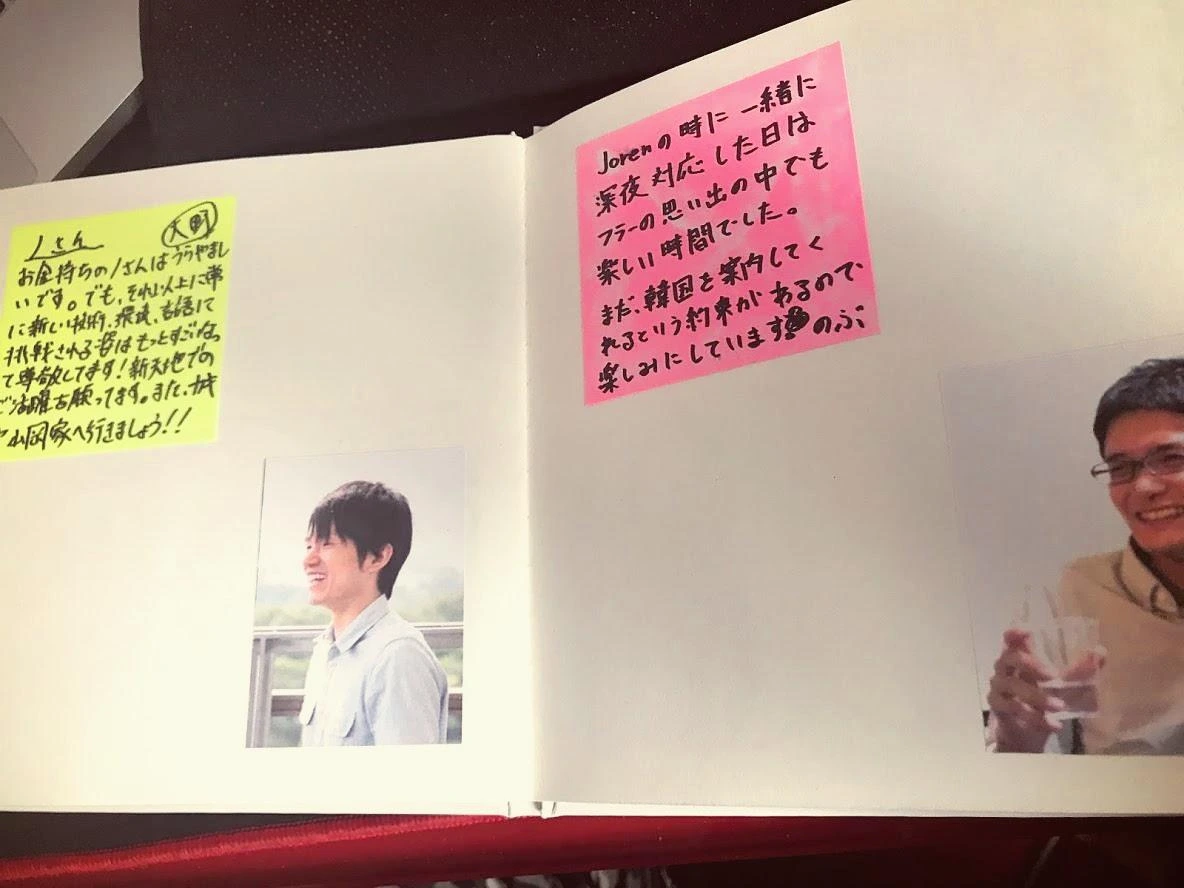 Jさん 大町
お金持ちのJさんはうらやまし
いです。でも、それ以上に常
に新しい技術、環境、言語に
挑戦される姿はもっとすごいなっ
て尊敬してます！新天地での
ご活躍お願ってます。また、ガキ
山岡家へ行きましょう!!
Jorenの時に一緒に
深夜対応した日は
フラーの思い出の中でも
楽しい時間でした。
まだ、韓国を案内してく
れるという約束があるので
楽しみにしています! のぶ